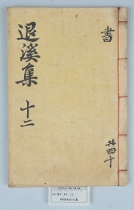 書
退溪集 十二
共四十